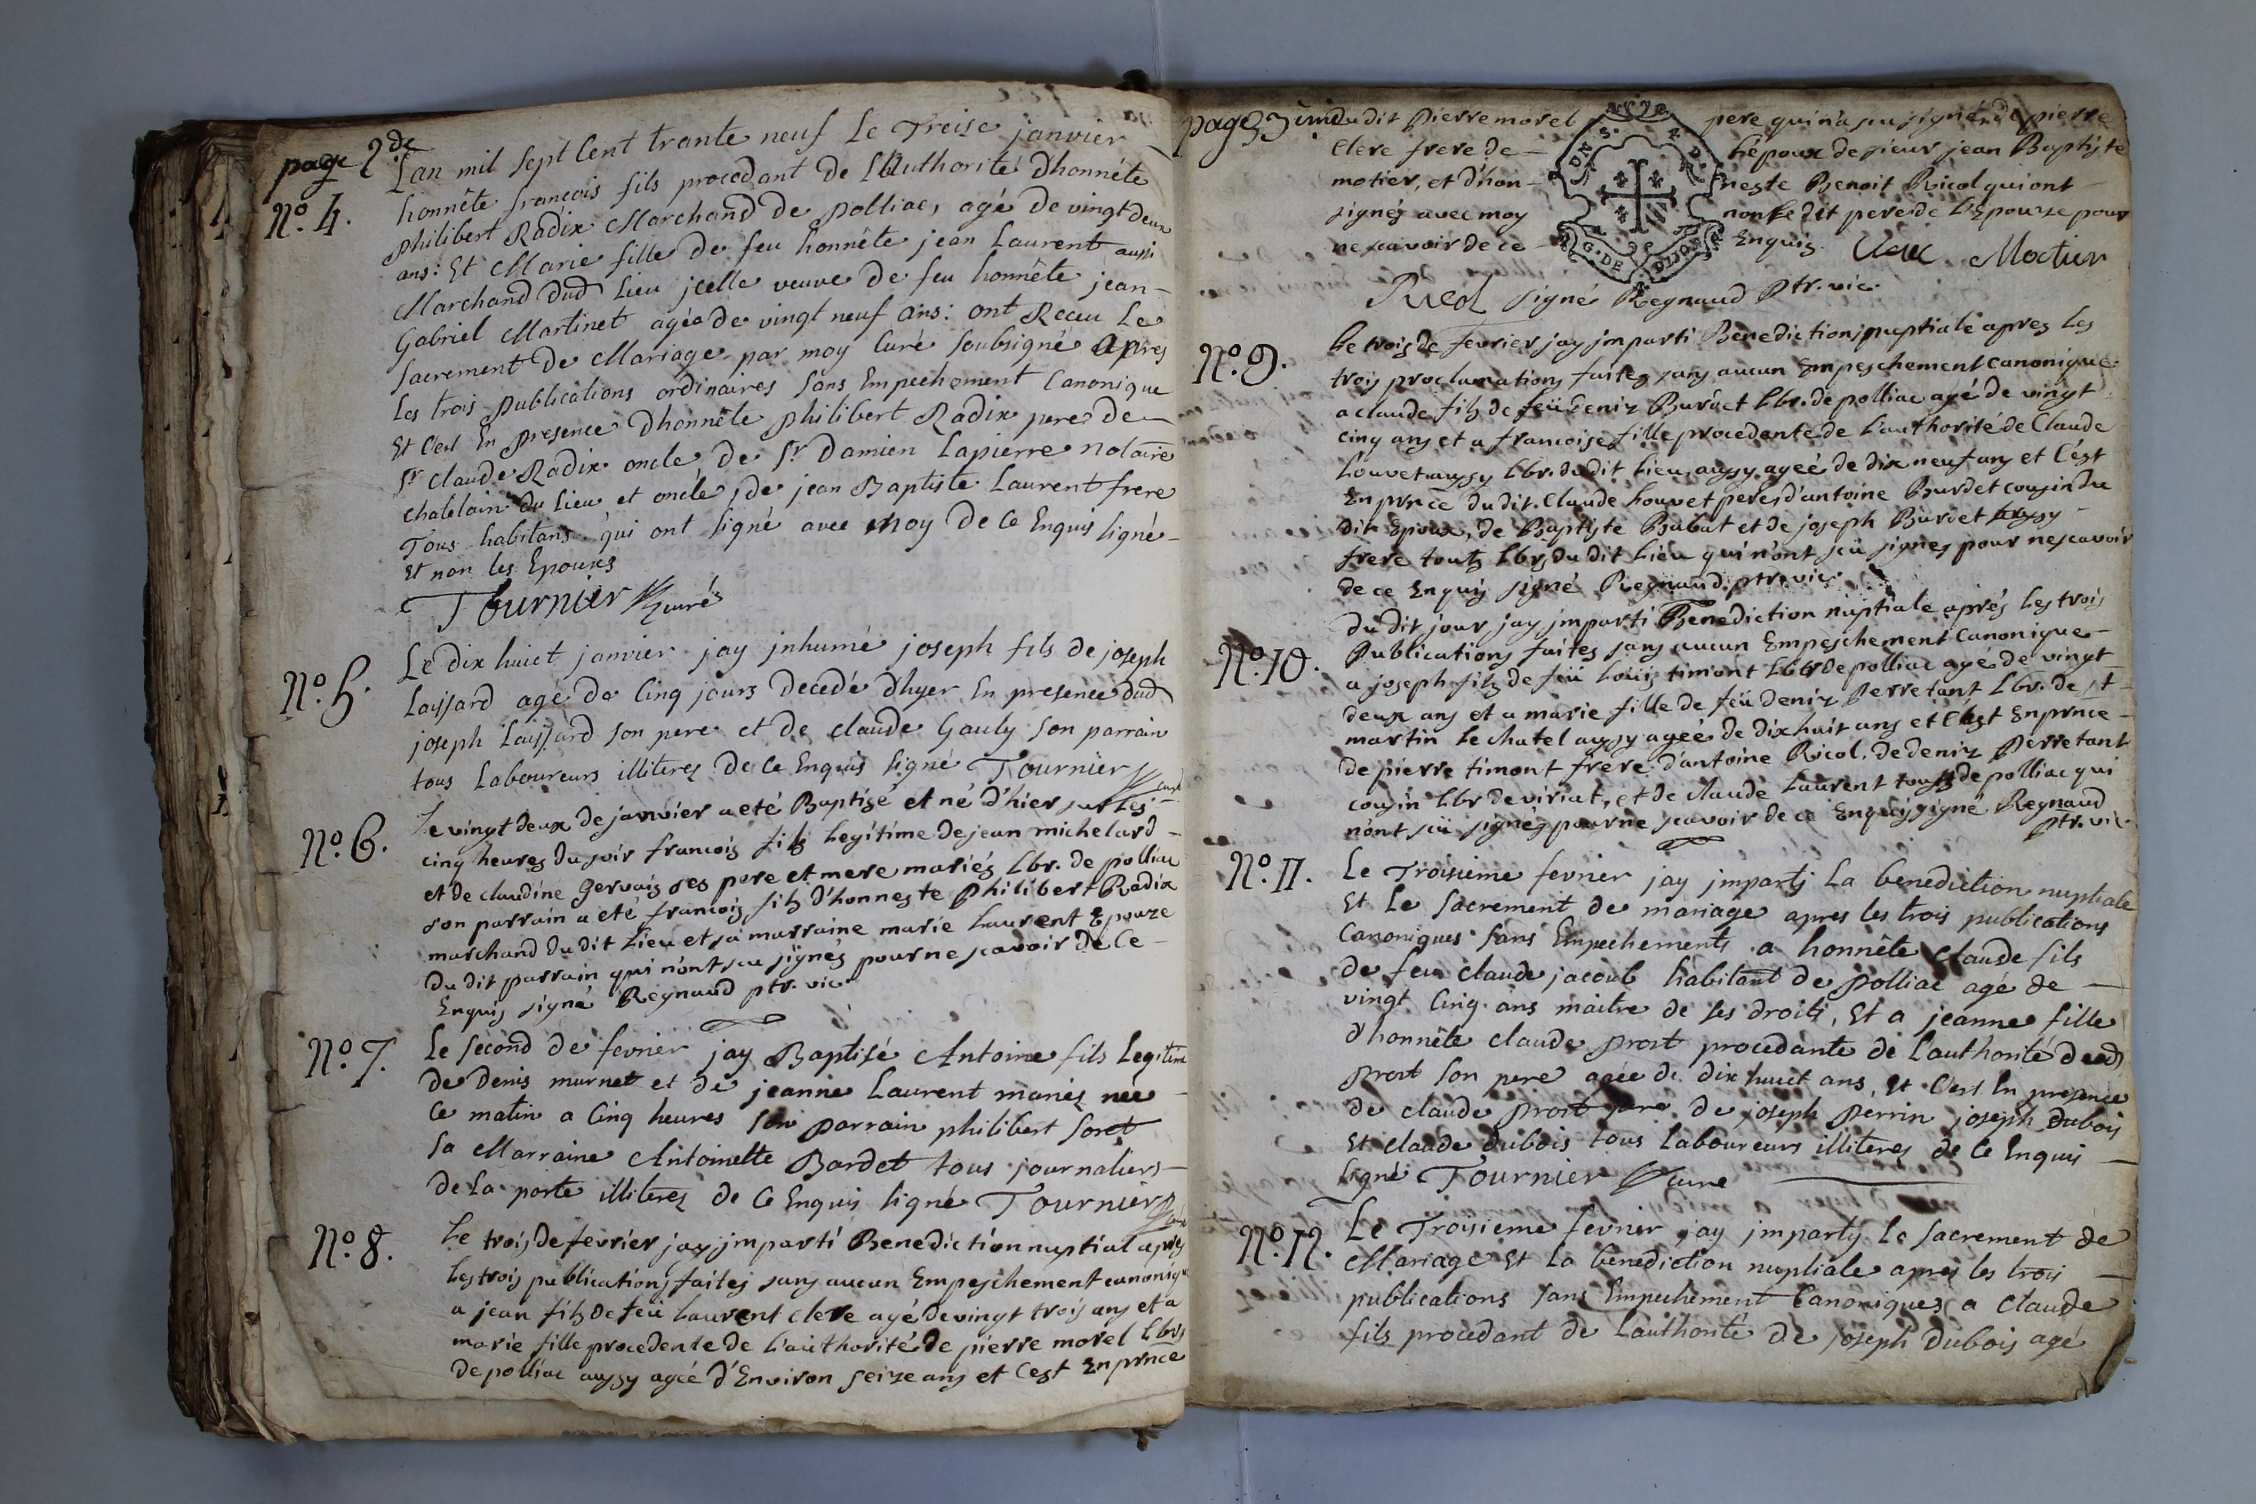 page 2.de
N.o 4.
Lan mil sept Cent trante neuf Le Treise janvier
honnête francois fils procedant de lAuthorité dhonnéte
philibert Radix Marchand de polliac, agé de vingt deux
ans: Et Marie fille de feu honnéte jean Laurent aussi
Marchand dud Lieu jcelle veuve de feu honnéte jean-
Gabriel Martinet agée de vingt neuf ans: ont Receu Le
Sacrement de Mariage par moy Curé Soubsigné apres
les trois publications ordinaires Sans Empechement Canonique
Et C'est En presence dhonnéte philibert Radix pere de-
Sr Claude Radix oncle, de Sr Damien Lapierre notaire
chatelain du Lieu et oncle, de jean Baptiste Laurent frere
Tous habitans qui ont signé avec Moy de Ce Enquis signé-
Et non les Epouxs
Tournier curé
N.o 5.
Le dix huict janvier jay jnhumé joseph fils de joseph
Laissard agé de Cinq jours decedé dhyer En presence dud
joseph Laissard Son pere et de claude Gauly Son parrain
tous Laboureurs illiterez de Ce Enquis signé Tournier curé
N.o 6.
Le vingt deux de janvier a eté Baptisé et né d'hier sur les-
cinq heures du soir francois fils legitime de jean michelard-
et de claudine Gervais ses pere et mere mariés lbr. de polliac
son parrain a eté francois fils d'honneste Philibert Radix
marchand du dit lieu et sa marraine marie laurent Epouze
du dit parrain qui n'ont sçu signés pour ne scavoir de Ce-
Enquis signé Regnaud ptr. vic.
N.o 7.
Le second de fevrier jay Baptisé Antoine fils Legitime
de Denis murnet et de jeanne Laurent mariez née
Ce matin a Cinq heures Son parrain philibert Soret
Sa Marraine Antoinette Bardet tous journaliers-
de La porte illiterez de Ce Enquis signé Tournier curé
N.o 8.
Le trois de fevrier jay jmparti Benediction nuptial apres
les trois publications faites sans aucun Empeschement canonique
a jean fils de feü laurent clere agé de vingt trois ans et a
marie fille procedente de l'authorité de pierre morel lbrs
de polliac aussy agée d'Environ seize ans et c'est En prnce
page 3 ime
du dit pierre morel pere qui n'a sçu signé, de pierre
clere frere de- l'époux de sieur jean Baptiste
motier, et d'hon- neste Benoit Ricol qui ont-
signés avec moy non le dit pere de l'Epouze pour
ne scavoir de ce- Enquis. Motier
signé Regnaud ptr. vic.
N.o 9.
Le trois de fevrier jay jmparti Benediction nuptiale apres les
trois proclamations faites sans aucun Empeschement canonique
a claude fils de feü Deniz Burdet lbr. de polliac agé de vingt
cinq ans et a francoise fille procedente de l'authorité de Claude
Louvet aussy lbr. du dit lieu, aussy ageé de dix neuf ans et C'est
En prnce du dit. Claude Louvet pere, d'antoine Burdet cousin du
dit Epoux, de Baptiste Babat et de joseph Burdet aussy-
frere touts lbrs du dit lieu qui n'ont sçü signes pour ne scavoir
de ce Enquis signé Regnaud. ptr. vic.
N.o 10.
Du dit jour jay jmparti Benediction nuptiale aprés les trois
Publications faites sans aucun Empeschement canonique-
a joseph fils de feü Loüis timont lbr de polliac agé de vingt-
deux ans et a marie fille de feü deniz Perretant lbr. de st-
martin le chatel aussy ageé de dix huit ans et C'est En prnce-
de pierre timont frére, d'antoine Ricol, de deniz perretant
cousin lbr de viriat, et de claude laurent touts de polliac qui
n'ont sçü signés pour ne scavoir de ce Enquis signé Regnaud
ptr. vic
N.o 11.
Le Troisieme fevrier jay jmparty La benediction nuptiale
Et Le Sacrement de mariage apres les trois publications
Canoniques Sans Empechements a honnéte Claude fils
de feu Claude jacoub habitant de polliac agé de-
vingt Cinq ans maitre de Ses droits, Et a jeanne fille
d'honnéte claude Prost procedante de l'authorité dud
Prost Son pere agée de dix huict ans, Et C'est En presence
de claude prost pere de joseph perrin joseph Dubois
Et claude dubois tous Laboureurs illiterez de Ce Enquis-
signé Tournier curé
N.o 12.
Le Troisieme fevrier jay jmparty Le Sacrement de
Mariage Et La benediction nuptiale apres les trois-
publications Sans Empechement Canoniques a Claude
fils procedant de Lauthorité de joseph Dubois agé